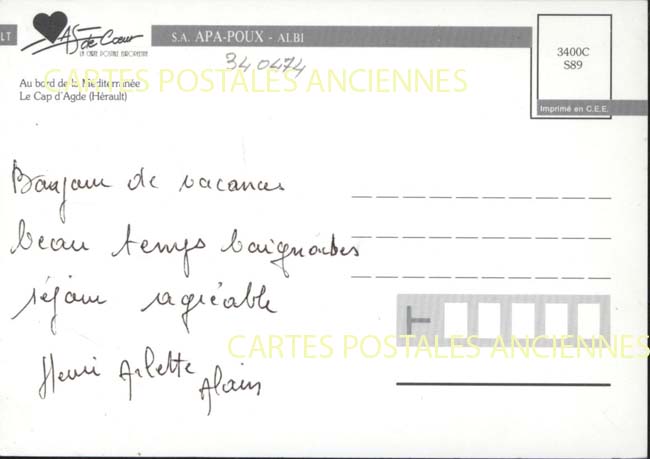 LT
AS de Cœur
LA CARTE POSTALE EUROPEENNE
S.A. APA-POUX - ALBI
3400C
S89
Imprimé en C.E.E.
34 0474
CARTES POSTALES ANCIENNES
Au bord de la Méditerranée
Le Cap d'Agde (Hérault)
Bonjour de vacances
beau temps baignades
séjour agréable
Henri Arlette Alain
CARTES POSTALES ANCIENNES